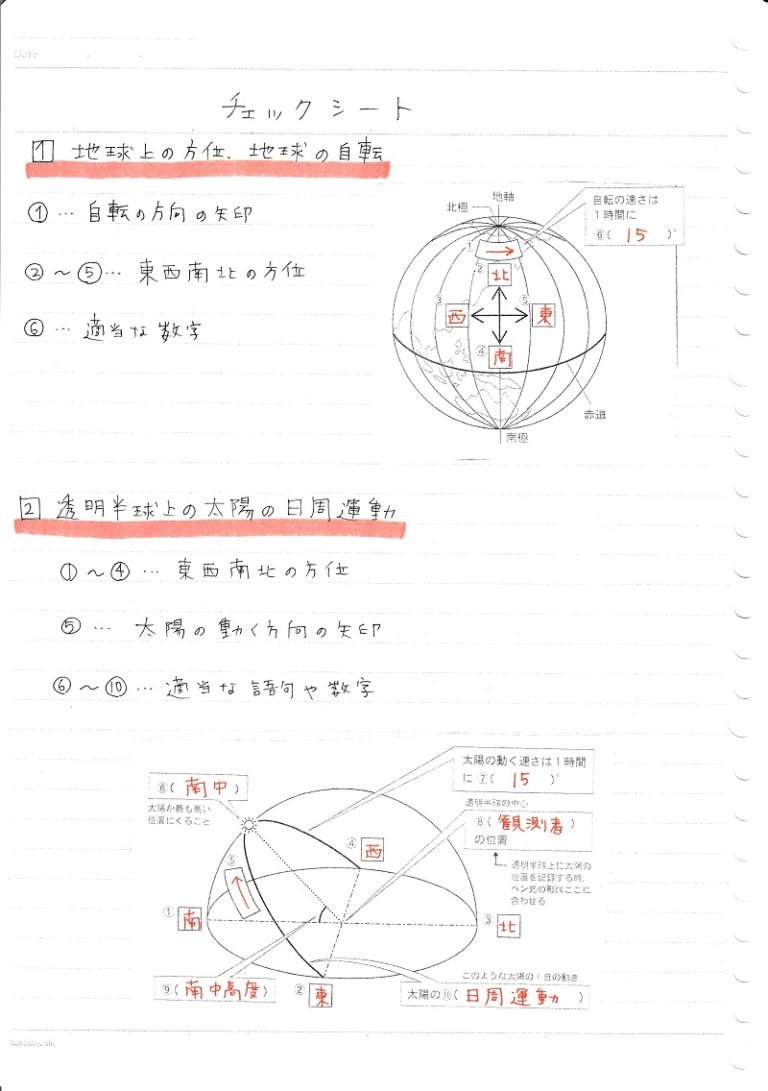 Date
チェックシート
1 地球上の方位、地球の自転
① … 自転の方向の矢印
② ～ ⑤ … 東西南北の方位
⑥ … 適当な数字
地軸
北極
自転の速さは
1時間に
⑥( 15 )°
①→
②北
③西
⑤東
④南
赤道
南極
2 透明半球上の太陽の日周運動
① ～ ④ … 東西南北の方位
⑤ … 太陽の動く方向の矢印
⑥ ～ ⑩ … 適当な語句や数字
太陽の動く速さは1時間
に⑦( 15 )°
⑥( 南中 )
太陽が最も高い
位置にくること
透明半球の中心
⑧( 観測者 )
の位置
透明半球上に太陽の
位置を記録する時、
ペン先の影はここに
合わせる
④西
⑤
①南
③北
⑨( 南中高度 )
②東
このような太陽の1日の動き
太陽の⑩( 日周運動 )
Nakabayashi